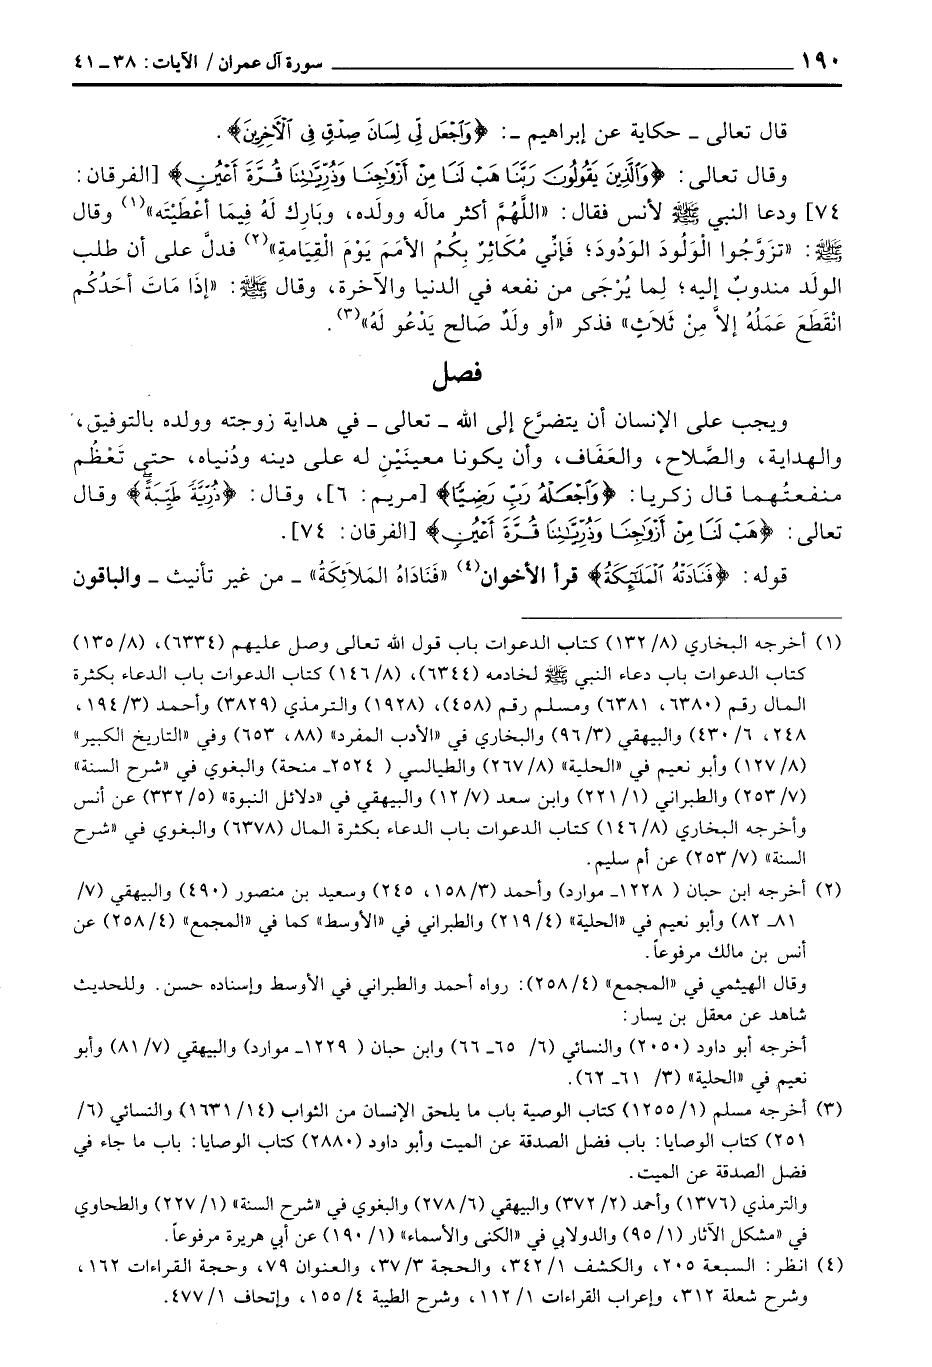 ١٩٠ سورة آل عمران / الآيات: ٣٨ ـ ٤١
قال تعالى ـ حكاية عن إبراهيم ـ: ﴿وَاجْعَل لِّي لِسَانَ صِدْقٍ فِي الْآخِرِينَ﴾.
وقال تعالى: ﴿وَالَّذِينَ يَقُولُونَ رَبَّنَا هَبْ لَنَا مِنْ أَزْوَاجِنَا وَذُرِّيَّاتِنَا قُرَّةَ أَعْيُنٍ﴾ [الفرقان:
٧٤] ودعا النبي ﷺ لأنس فقال: «اللَّهُمَّ أكثر مالَه وولده، وبَارِك لَهُ فِيمَا أعْطَيْتَه»(١) وقال
ﷺ: «تزَوَّجُوا الْوَلُودَ الوَدُودَ؛ فَإنِّي مُكَاثِرٌ بِكُمُ الأمَمَ يَوْمَ الْقِيَامةِ»(٢) فدلَّ على أن طلب
الولَد مندوبٌ إليه؛ لِما يُرْجَى من نفعه في الدنيا والآخرة، وقال ﷺ: «إذَا مَاتَ أحَدُكُم
انْقَطَعَ عَمَلُهُ إلاَّ مِنْ ثَلاَثٍ» فذكر «أو ولَدٌ صَالح يَدْعُو لَهُ»(٣).
فصل
ويجب على الإنسان أن يتضرَّع إلى الله ـ تعالى ـ في هداية زوجته وولده بالتوفيق،
والهداية، والصَّلاح، والعَفَاف، وأن يكونا معينَيْنِ له على دينه ودُنياه، حتى تَعْظُم
منفعتُهما قال زكريا: ﴿وَاجْعَلْهُ رَبِّ رَضِيًّا﴾ [مريم: ٦]، وقال: ﴿ذُرِّيَّةً طَيِّبَةً﴾ وقال
تعالى: ﴿هَبْ لَنَا مِنْ أَزْوَاجِنَا وَذُرِّيَّاتِنَا قُرَّةَ أَعْيُنٍ﴾ [الفرقان: ٧٤].
قوله: ﴿فَنَادَتْهُ الْمَلَائِكَةُ﴾ قرأ الأخوان(٤) «فَنَادَاهُ المَلاَئِكَةُ» ـ من غير تأنيث ـ والباقون
(١) أخرجه البخاري (٨/ ١٣٢) كتاب الدعوات باب قول الله تعالى وصل عليهم (٦٣٣٤)، (٨/ ١٣٥)
كتاب الدعوات باب دعاء النبي ﷺ لخادمه (٦٣٤٤)، (٨/ ١٤٦) كتاب الدعوات باب الدعاء بكثرة
المال رقم (٦٣٨٠، ٦٣٨١) ومسلم رقم (٤٥٨)، (١٩٢٨) والترمذي (٣٨٢٩) وأحمد (٣/ ١٩٤،
٢٤٨، ٦/ ٤٣٠) والبيهقي (٣/ ٩٦) والبخاري في «الأدب المفرد» (٨٨، ٦٥٣) وفي «التاريخ الكبير»
(٨/ ١٢٧) وأبو نعيم في «الحلية» (٨/ ٢٦٧) والطيالسي ( ٢٥٢٤ـ منحة) والبغوي في «شرح السنة»
(٧/ ٢٥٣) والطبراني (١/ ٢٢١) وابن سعد (٧/ ١٢) والبيهقي في «دلائل النبوة» (٥/ ٣٣٢) عن أنس
وأخرجه البخاري (٨/ ١٤٦) كتاب الدعوات باب الدعاء بكثرة المال (٦٣٧٨) والبغوي في «شرح
السنة» (٧/ ٢٥٣) عن أم سليم.
(٢) أخرجه ابن حبان ( ١٢٢٨ـ موارد) وأحمد (٣/ ١٥٨، ٢٤٥) وسعيد بن منصور (٤٩٠) والبيهقي (٧/
٨١ـ ٨٢) وأبو نعيم في «الحلية» (٤/ ٢١٩) والطبراني في «الأوسط» كما في «المجمع» (٤/ ٢٥٨) عن
أنس بن مالك مرفوعاً.
وقال الهيثمي في «المجمع» (٤/ ٢٥٨): رواه أحمد والطبراني في الأوسط وإسناده حسن. وللحديث
شاهد عن معقل بن يسار:
أخرجه أبو داود (٢٠٥٠) والنسائي (٦/ ٦٥ـ ٦٦) وابن حبان ( ١٢٢٩ـ موارد) والبيهقي (٧/ ٨١) وأبو
نعيم في «الحلية» (٣/ ٦١ـ ٦٢).
(٣) أخرجه مسلم (١/ ١٢٥٥) كتاب الوصية باب ما يلحق الإنسان من الثواب (١٤/ ١٦٣١) والنسائي (٦/
٢٥١) كتاب الوصايا: باب فضل الصدقة عن الميت وأبو داود (٢٨٨٠) كتاب الوصايا: باب ما جاء في
فضل الصدقة عن الميت.
والترمذي (١٣٧٦) وأحمد (٢/ ٣٧٢) والبيهقي (٦/ ٢٧٨) والبغوي في «شرح السنة» (١/ ٢٢٧) والطحاوي
في «مشكل الآثار (١/ ٩٥) والدولابي في «الكنى والأسماء» (١/ ١٩٠) عن أبي هريرة مرفوعاً.
(٤) انظر: السبعة ٢٠٥، والكشف ١/ ٣٤٢، والحجة ٣/ ٣٧، والعنوان ٧٩، وحجة القراءات ١٦٢،
وشرح شعلة ٣١٢، وإعراب القراءات ١/ ١١٢، وشرح الطيبة ٤/ ١٥٥، وإتحاف ١/ ٤٧٧.